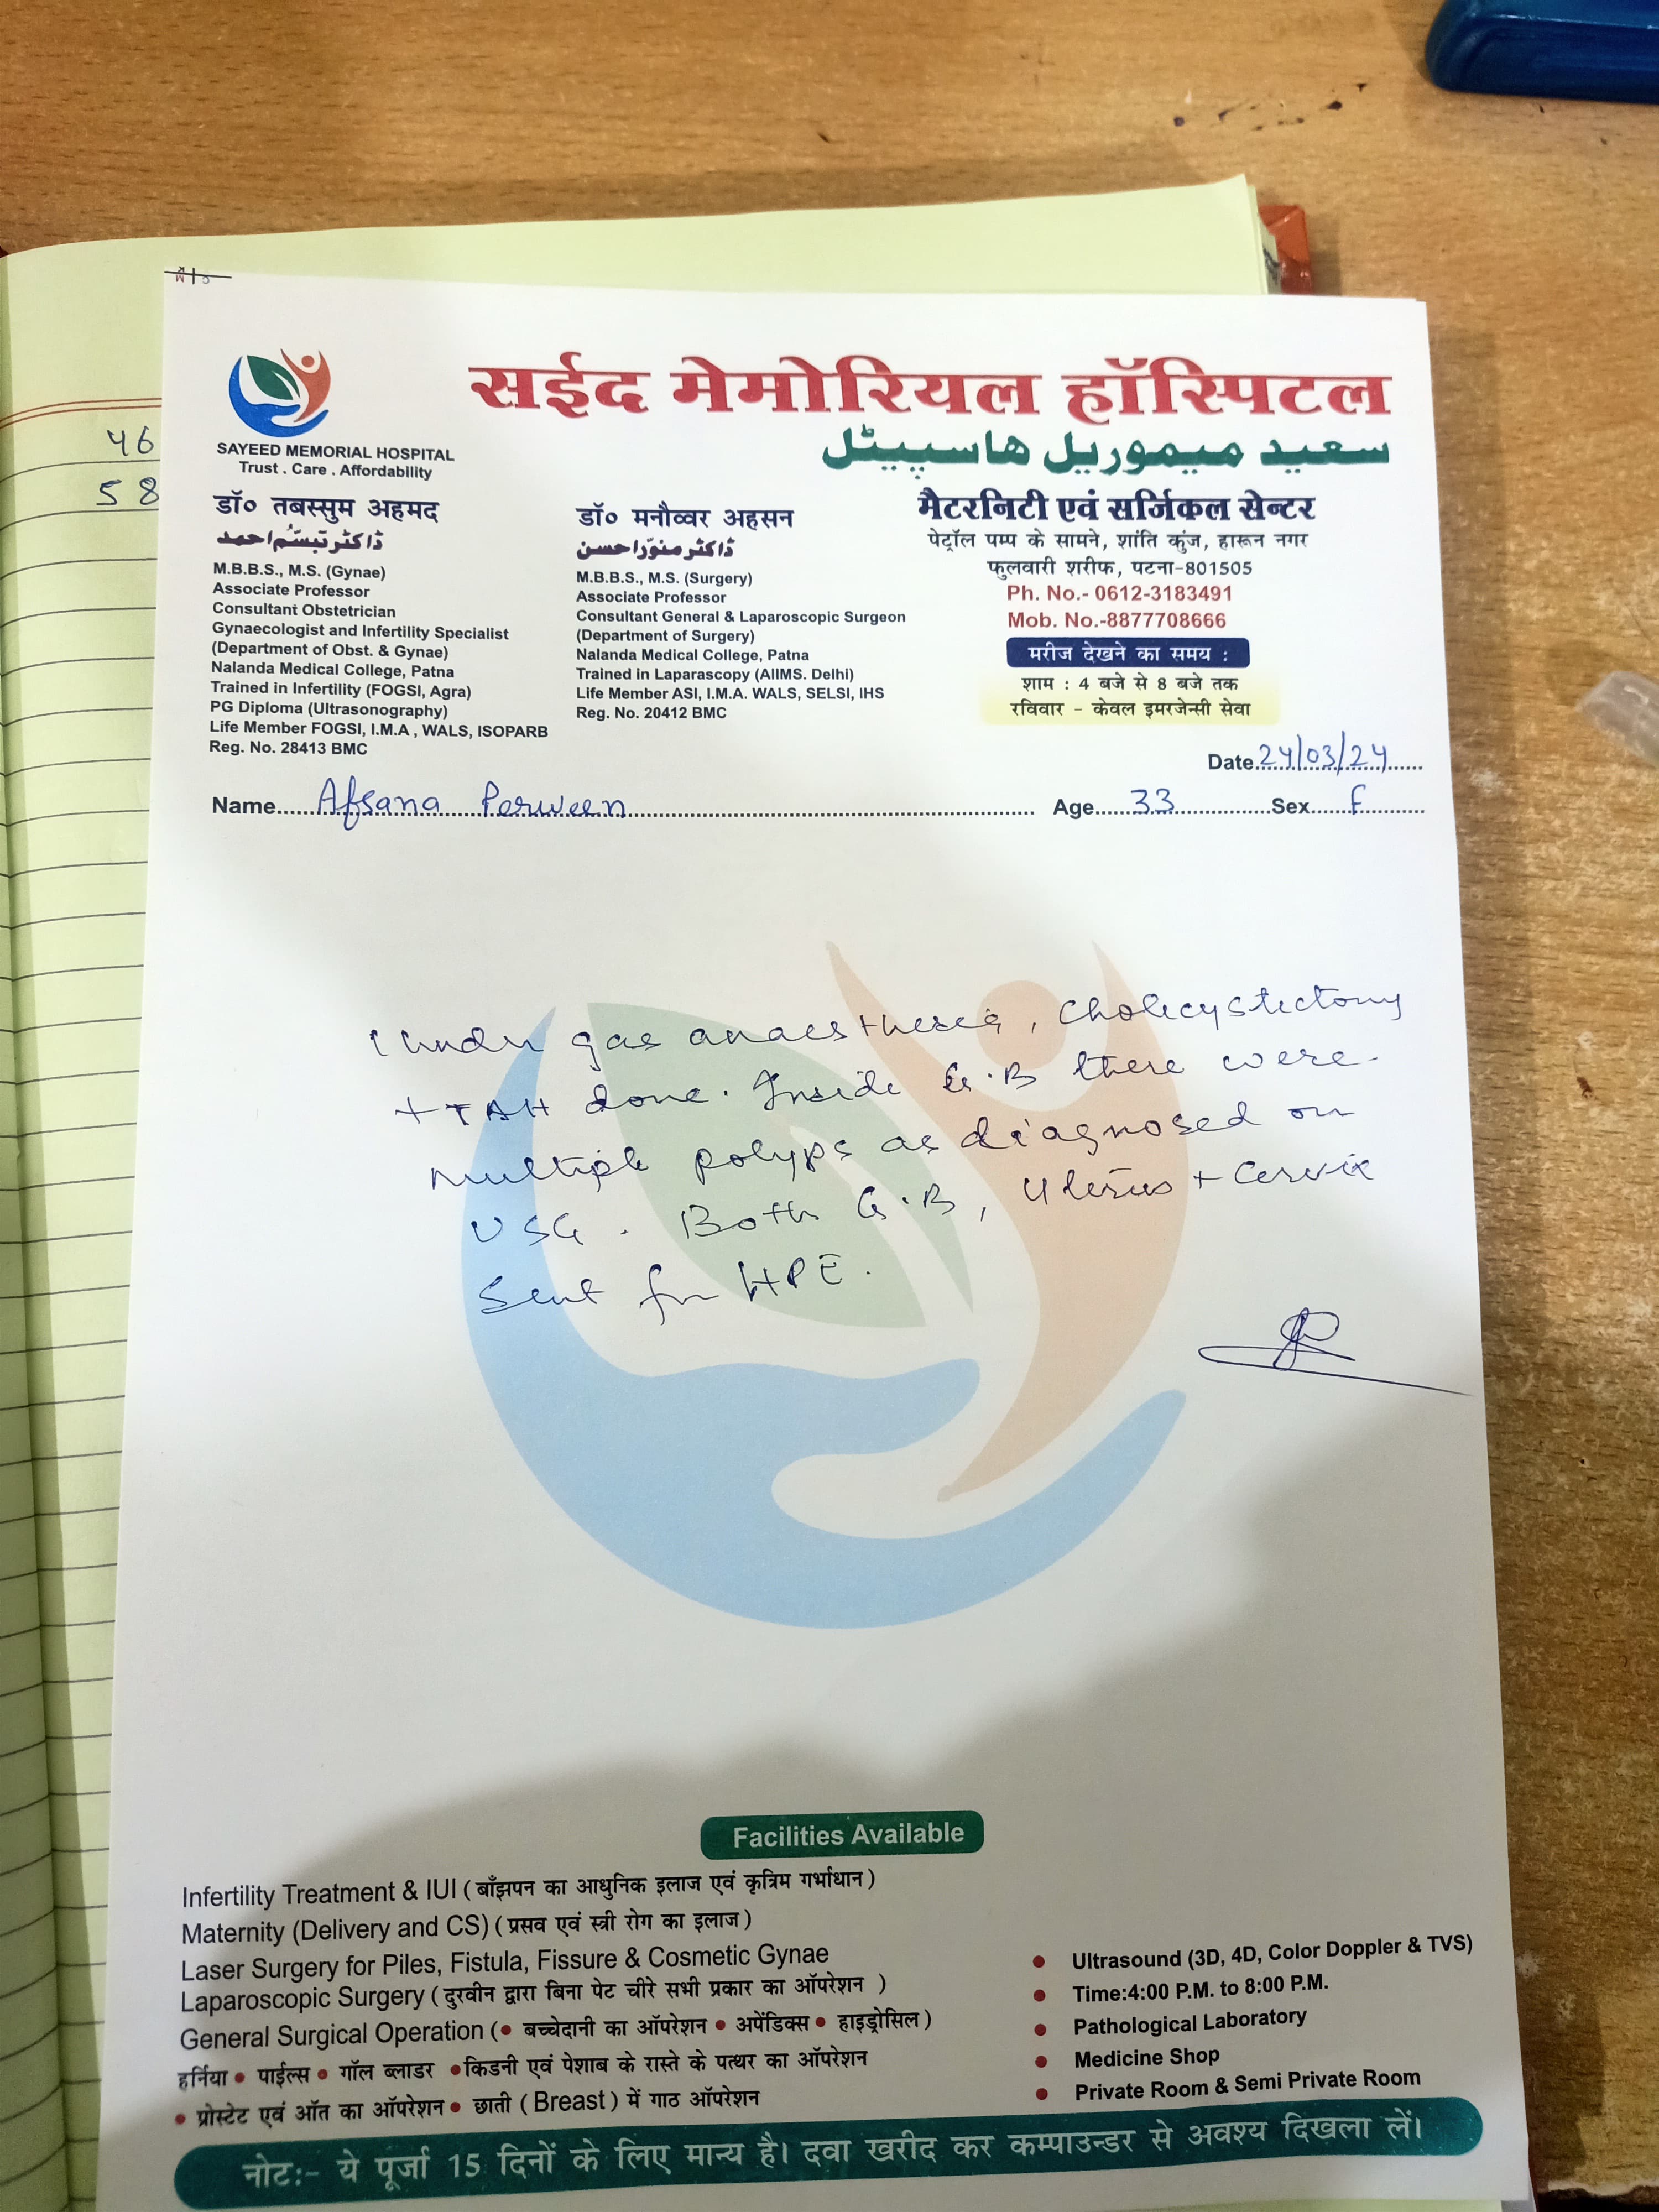 46
58
सईद मेमोरियल हॉस्पिटल
سعید میموریل ھاسپیٹل
SAYEED MEMORIAL HOSPITAL
Trust . Care . Affordability
डॉ० तबस्सुम अहमद
ڈاکٹر تبسّم احمد
M.B.B.S., M.S. (Gynae)
Associate Professor
Consultant Obstetrician
Gynaecologist and Infertility Specialist
(Department of Obst. & Gynae)
Nalanda Medical College, Patna
Trained in Infertility (FOGSI, Agra)
PG Diploma (Ultrasonography)
Life Member FOGSI, I.M.A , WALS, ISOPARB
Reg. No. 28413 BMC
डॉ० मनौव्वर अहसन
ڈاکٹر منوّر احسن
M.B.B.S., M.S. (Surgery)
Associate Professor
Consultant General & Laparoscopic Surgeon
(Department of Surgery)
Nalanda Medical College, Patna
Trained in Laparascopy (AIIMS. Delhi)
Life Member ASI, I.M.A. WALS, SELSI, IHS
Reg. No. 20412 BMC
मैटरनिटी एवं सर्जिकल सेन्टर
पेट्रॉल पम्प के सामने, शांति कुंज, हारून नगर
फुलवारी शरीफ, पटना-801505
Ph. No.- 0612-3183491
Mob. No.-8877708666
मरीज देखने का समय :
शाम : 4 बजे से 8 बजे तक
रविवार - केवल इमरजेन्सी सेवा
Date 24/03/24
Name Afsana Perween Age 33 Sex F
Under gas anaesthesia, Cholecystectomy
+ TAH done. Inside G.B there were
multiple polyps as diagnosed on
USG. Both G.B, Uterus + Cervix
Sent for HPE.
Facilities Available
Infertility Treatment & IUI ( बाँझपन का आधुनिक इलाज एवं कृत्रिम गर्भाधान )
Maternity (Delivery and CS) ( प्रसव एवं स्त्री रोग का इलाज )
Laser Surgery for Piles, Fistula, Fissure & Cosmetic Gynae
Laparoscopic Surgery ( दुरवीन द्वारा बिना पेट चीरे सभी प्रकार का ऑपरेशन )
General Surgical Operation (• बच्चेदानी का ऑपरेशन • अपेंडिक्स • हाइड्रोसिल )
हर्निया • पाईल्स • गॉल ब्लाडर • किडनी एवं पेशाब के रास्ते के पत्थर का ऑपरेशन
• प्रोस्टेट एवं ऑत का ऑपरेशन • छाती ( Breast ) में गाठ ऑपरेशन
• Ultrasound (3D, 4D, Color Doppler & TVS)
• Time:4:00 P.M. to 8:00 P.M.
• Pathological Laboratory
• Medicine Shop
• Private Room & Semi Private Room
नोटः- ये पूर्जा 15 दिनों के लिए मान्य है। दवा खरीद कर कम्पाउन्डर से अवश्य दिखला लें।